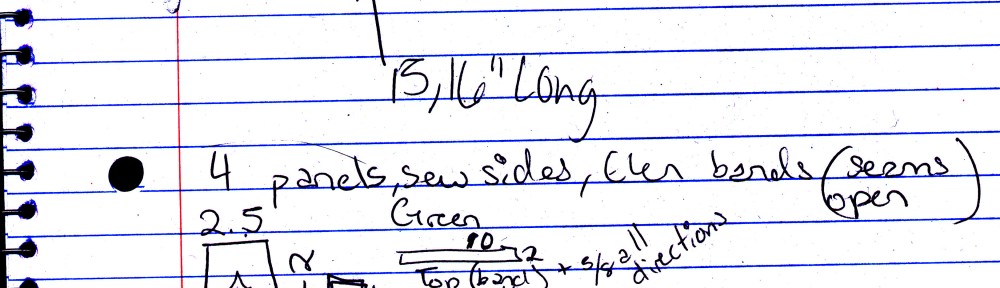 15,16" Long
4 panels, sew sides, then bands (seams open)
2.5 Green
10
2
Top (band) + 5/8 all directions